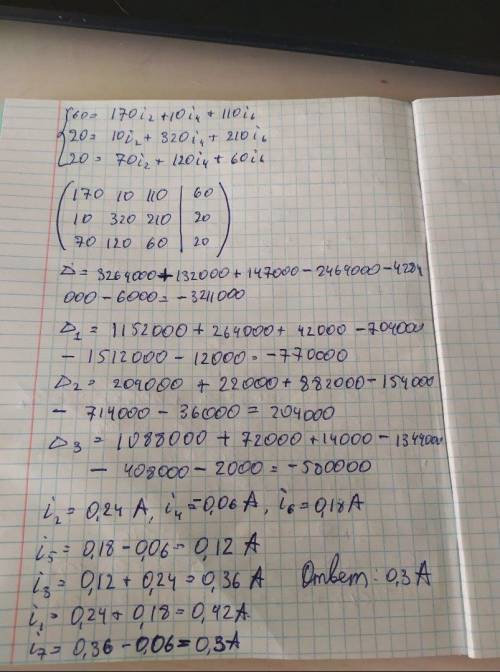 60 = 170i₂ + 10i₄ + 110i₆
20 = 10i₂ + 320i₄ + 210i₆
20 = 70i₂ + 120i₄ + 60i₆
170 10 110 | 60
10 320 210 | 20
70 120 60 | 20
Δ = 3264000 + 132000 + 147000 - 2464000 - 4284
000 - 6000 = - 3211000
Δ₁ = 1152000 + 264000 + 42000 - 704000
- 1512000 - 12000 = - 770000
Δ₂ = 204000 + 22000 + 882000 - 154000
- 714000 - 36000 = 204000
Δ₃ = 1088000 + 72000 + 14000 - 1344000
- 408000 - 2000 = - 580000
i₂ = 0,24 A, i₄ = -0,06 A, i₆ = 0,18 A
i₅ = 0,18 - 0,06 = 0,12 A
i₃ = 0,12 + 0,24 = 0,36 A Ответ: 0,3 A
i₁ = 0,24 + 0,18 = 0,42 A
i₇ = 0,36 - 0,06 = 0,3 A